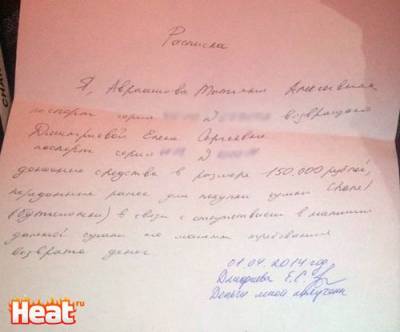 Расписка
Я, Аврашова Татьяна Алексеевна,
паспорт серия N возвращаю
Дмитриевой Елене Сергеевне
паспорт серия N
денежные средства в размере 150.000 рублей,
переданные ранее для покупки сумки Chanel
в связи с отсутствием в наличии
данной сумки не имеет требования
возврата денег
01.04.2014 год
Дмитриева Е.С.
Деньги мной получены
Heat.ru
CHAN